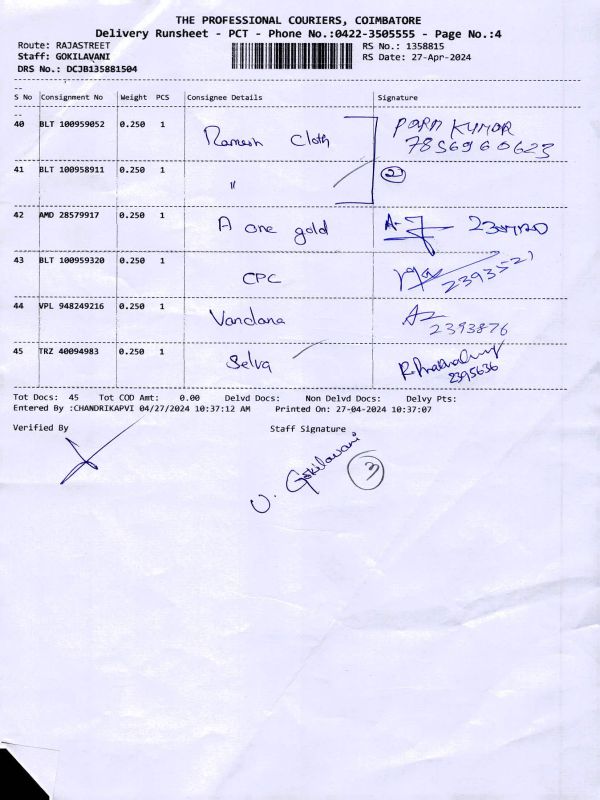 THE PROFESSIONAL COURIERS, COIMBATORE
Delivery Runsheet - PCT - Phone No.:0422-3505555 - Page No.:4
Route: RAJASTREET RS No.: 1358815
Staff: GOKILAVANI RS Date: 27-Apr-2024
DRS No.: DCJB135881504
S No Consignment No Weight PCS Consignee Details Signature
40 BLT 100959052 0.250 1 Ramesh Cloth PARA KUMAR
7856960623
41 BLT 100958911 0.250 1 " 2
42 AMD 28579917 0.250 1 A one gold
43 BLT 100959320 0.250 1 CPC 2393521
44 VPL 948249216 0.250 1 Vandana
2393876
45 TRZ 40094983 0.250 1 Selva
2395636
Tot Docs: 45 Tot COD Amt: 0.00 Delvd Docs: Non Delvd Docs: Delvy Pts:
Entered By :CHANDRIKAPVI 04/27/2024 10:37:12 AM Printed On: 27-04-2024 10:37:07
Verified By Staff Signature
V. Gokilavani 3